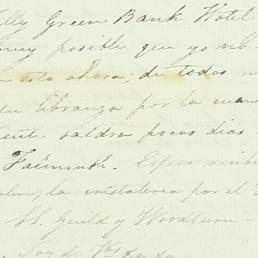 lly Green Bank Hotel
muy posible que yo no
esto ahora; de todos
libranza por la
saldra pocos dias
Falmouth. Espero recibi
la cristaleria por el
M. Guild y Woodburn-
Soy de Vds